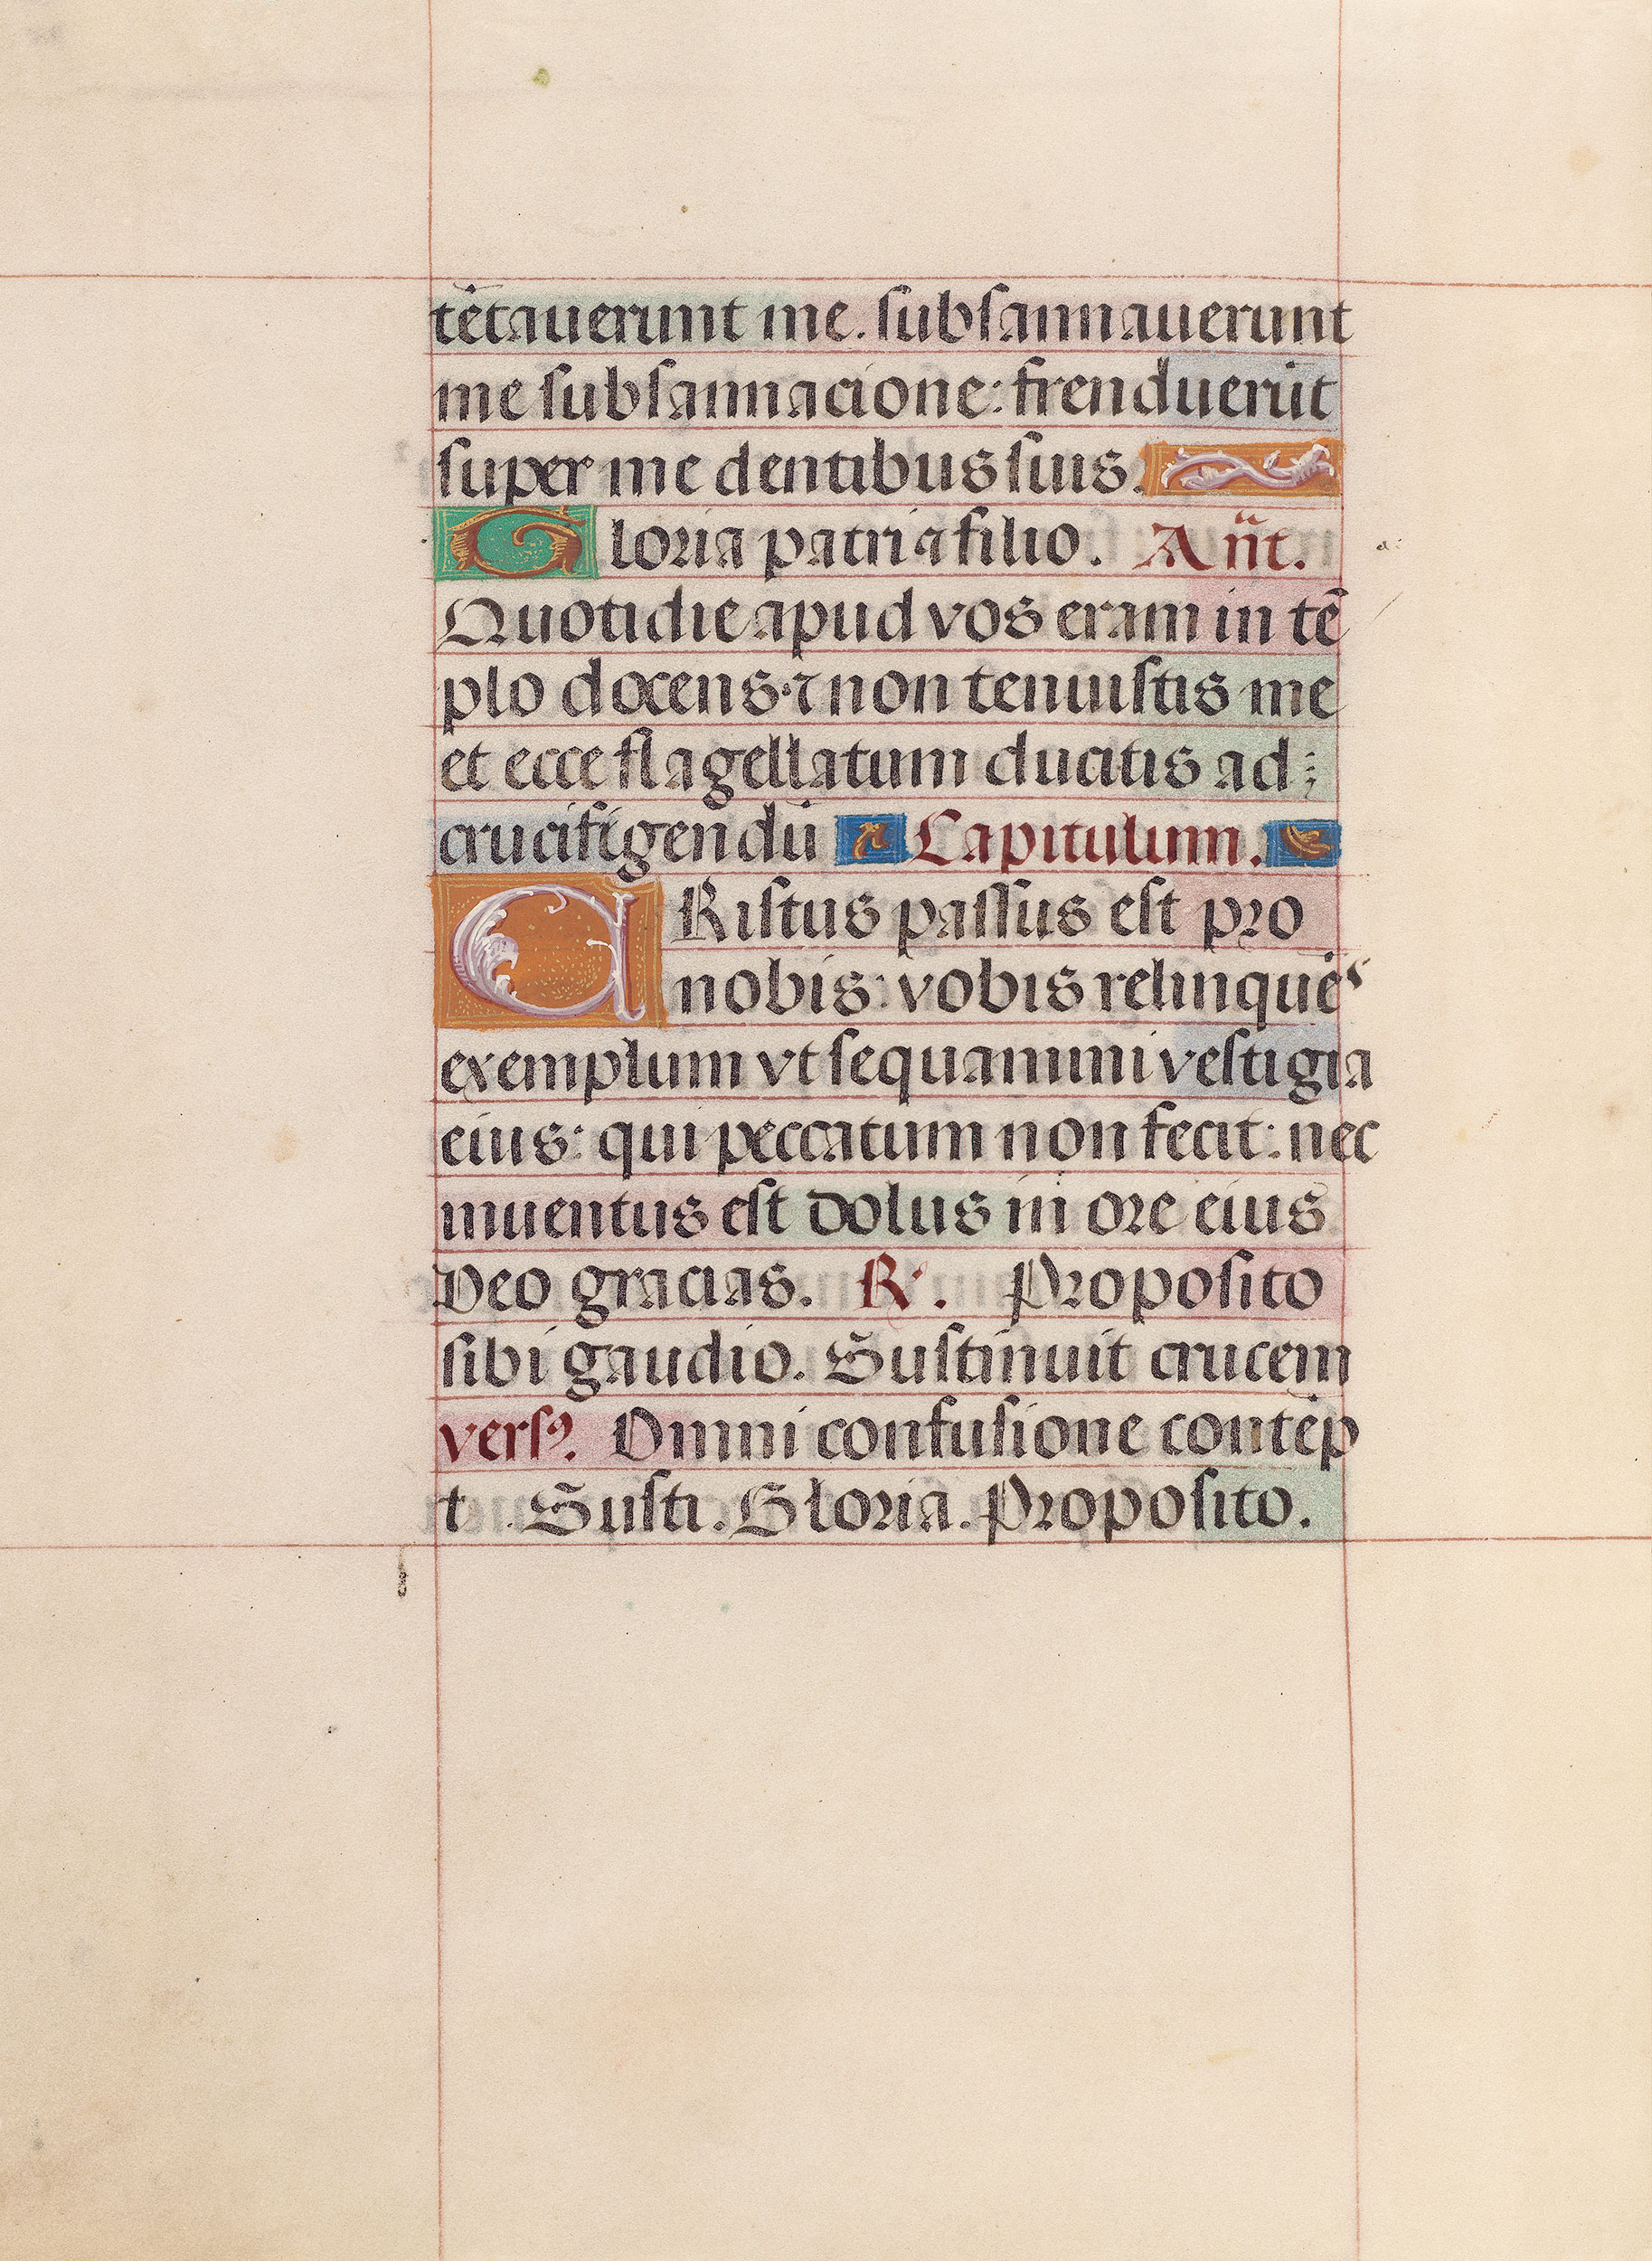 tētauerunt me. subsannauerunt
me subsannacione: frenduerūt
super me dentibus suis.
Gloria patri ⁊ filio. Añt.
Quotidie apud vos eram in tē
plo docens ⁊ non tenuistis me
et ecce flagellatum ducitis ad
crucifigendū Capitulum.
CRistus passus est pro
nobis: vobis relinquēs
exemplum vt sequamini vestigia
eius: qui peccatum non fecit: nec
inuentus est dolus in ore eius
Deo gracias. R. Proposito
sibi gaudio. Sustinuit crucem
versꝰ. Omni confusione contēp
t. Susti. Gloria. Proposito.